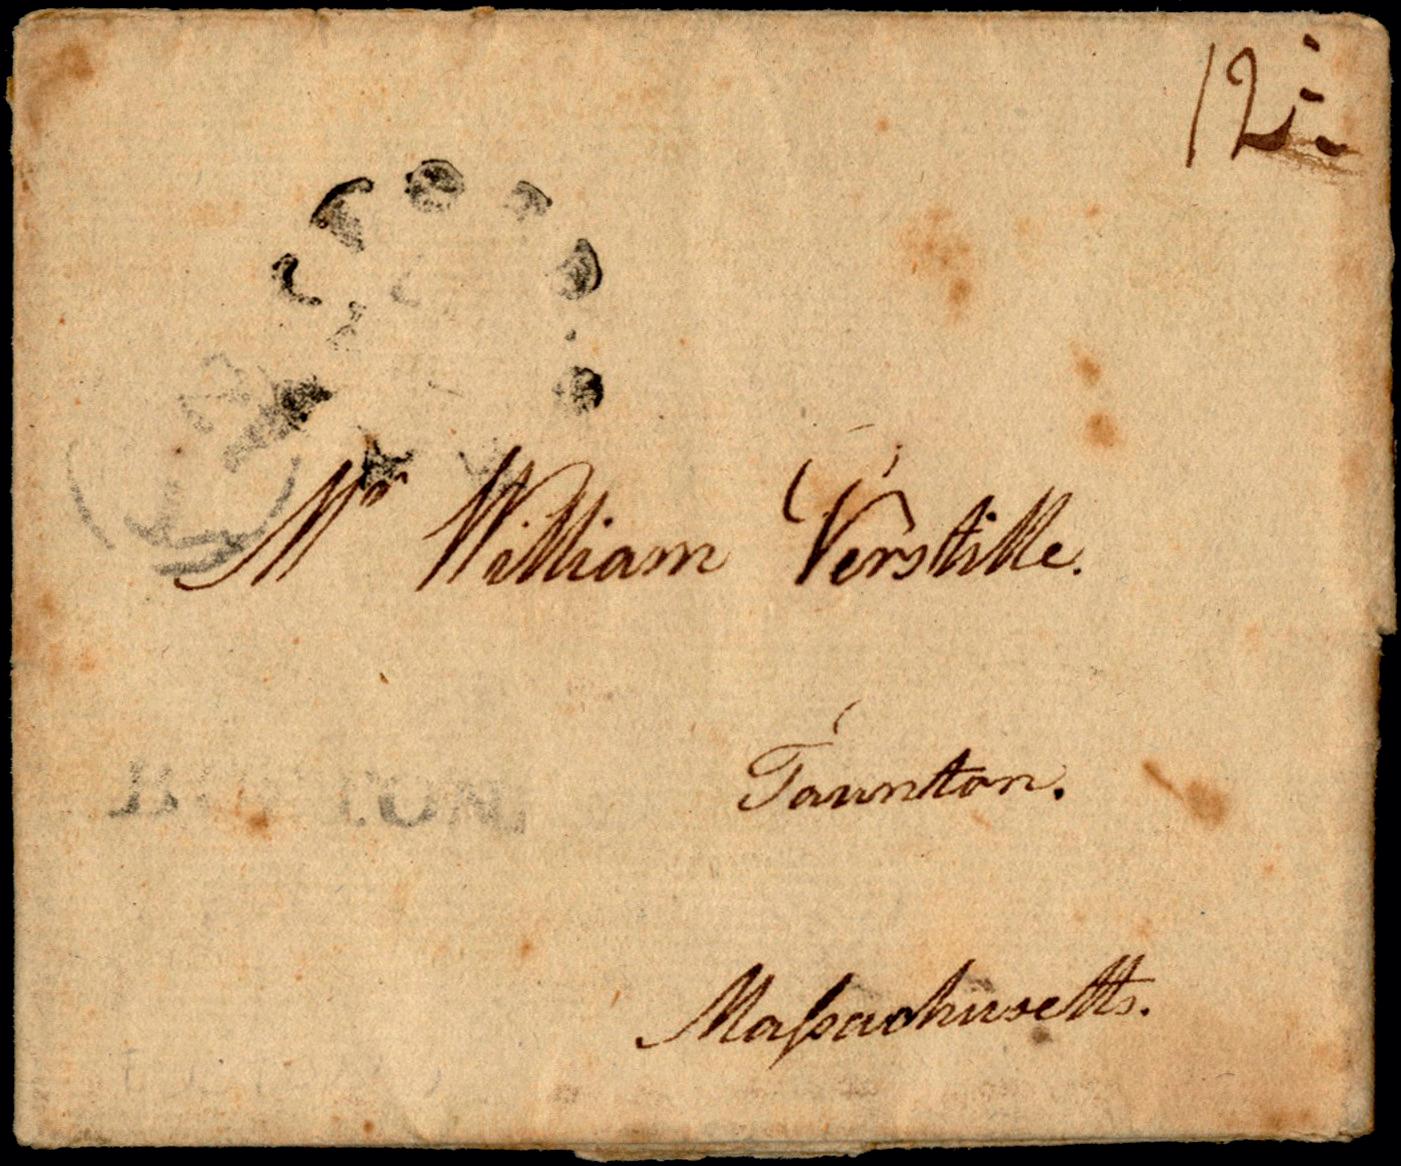 12
Mr William Verstille.
Taunton.
Maſsachusetts.